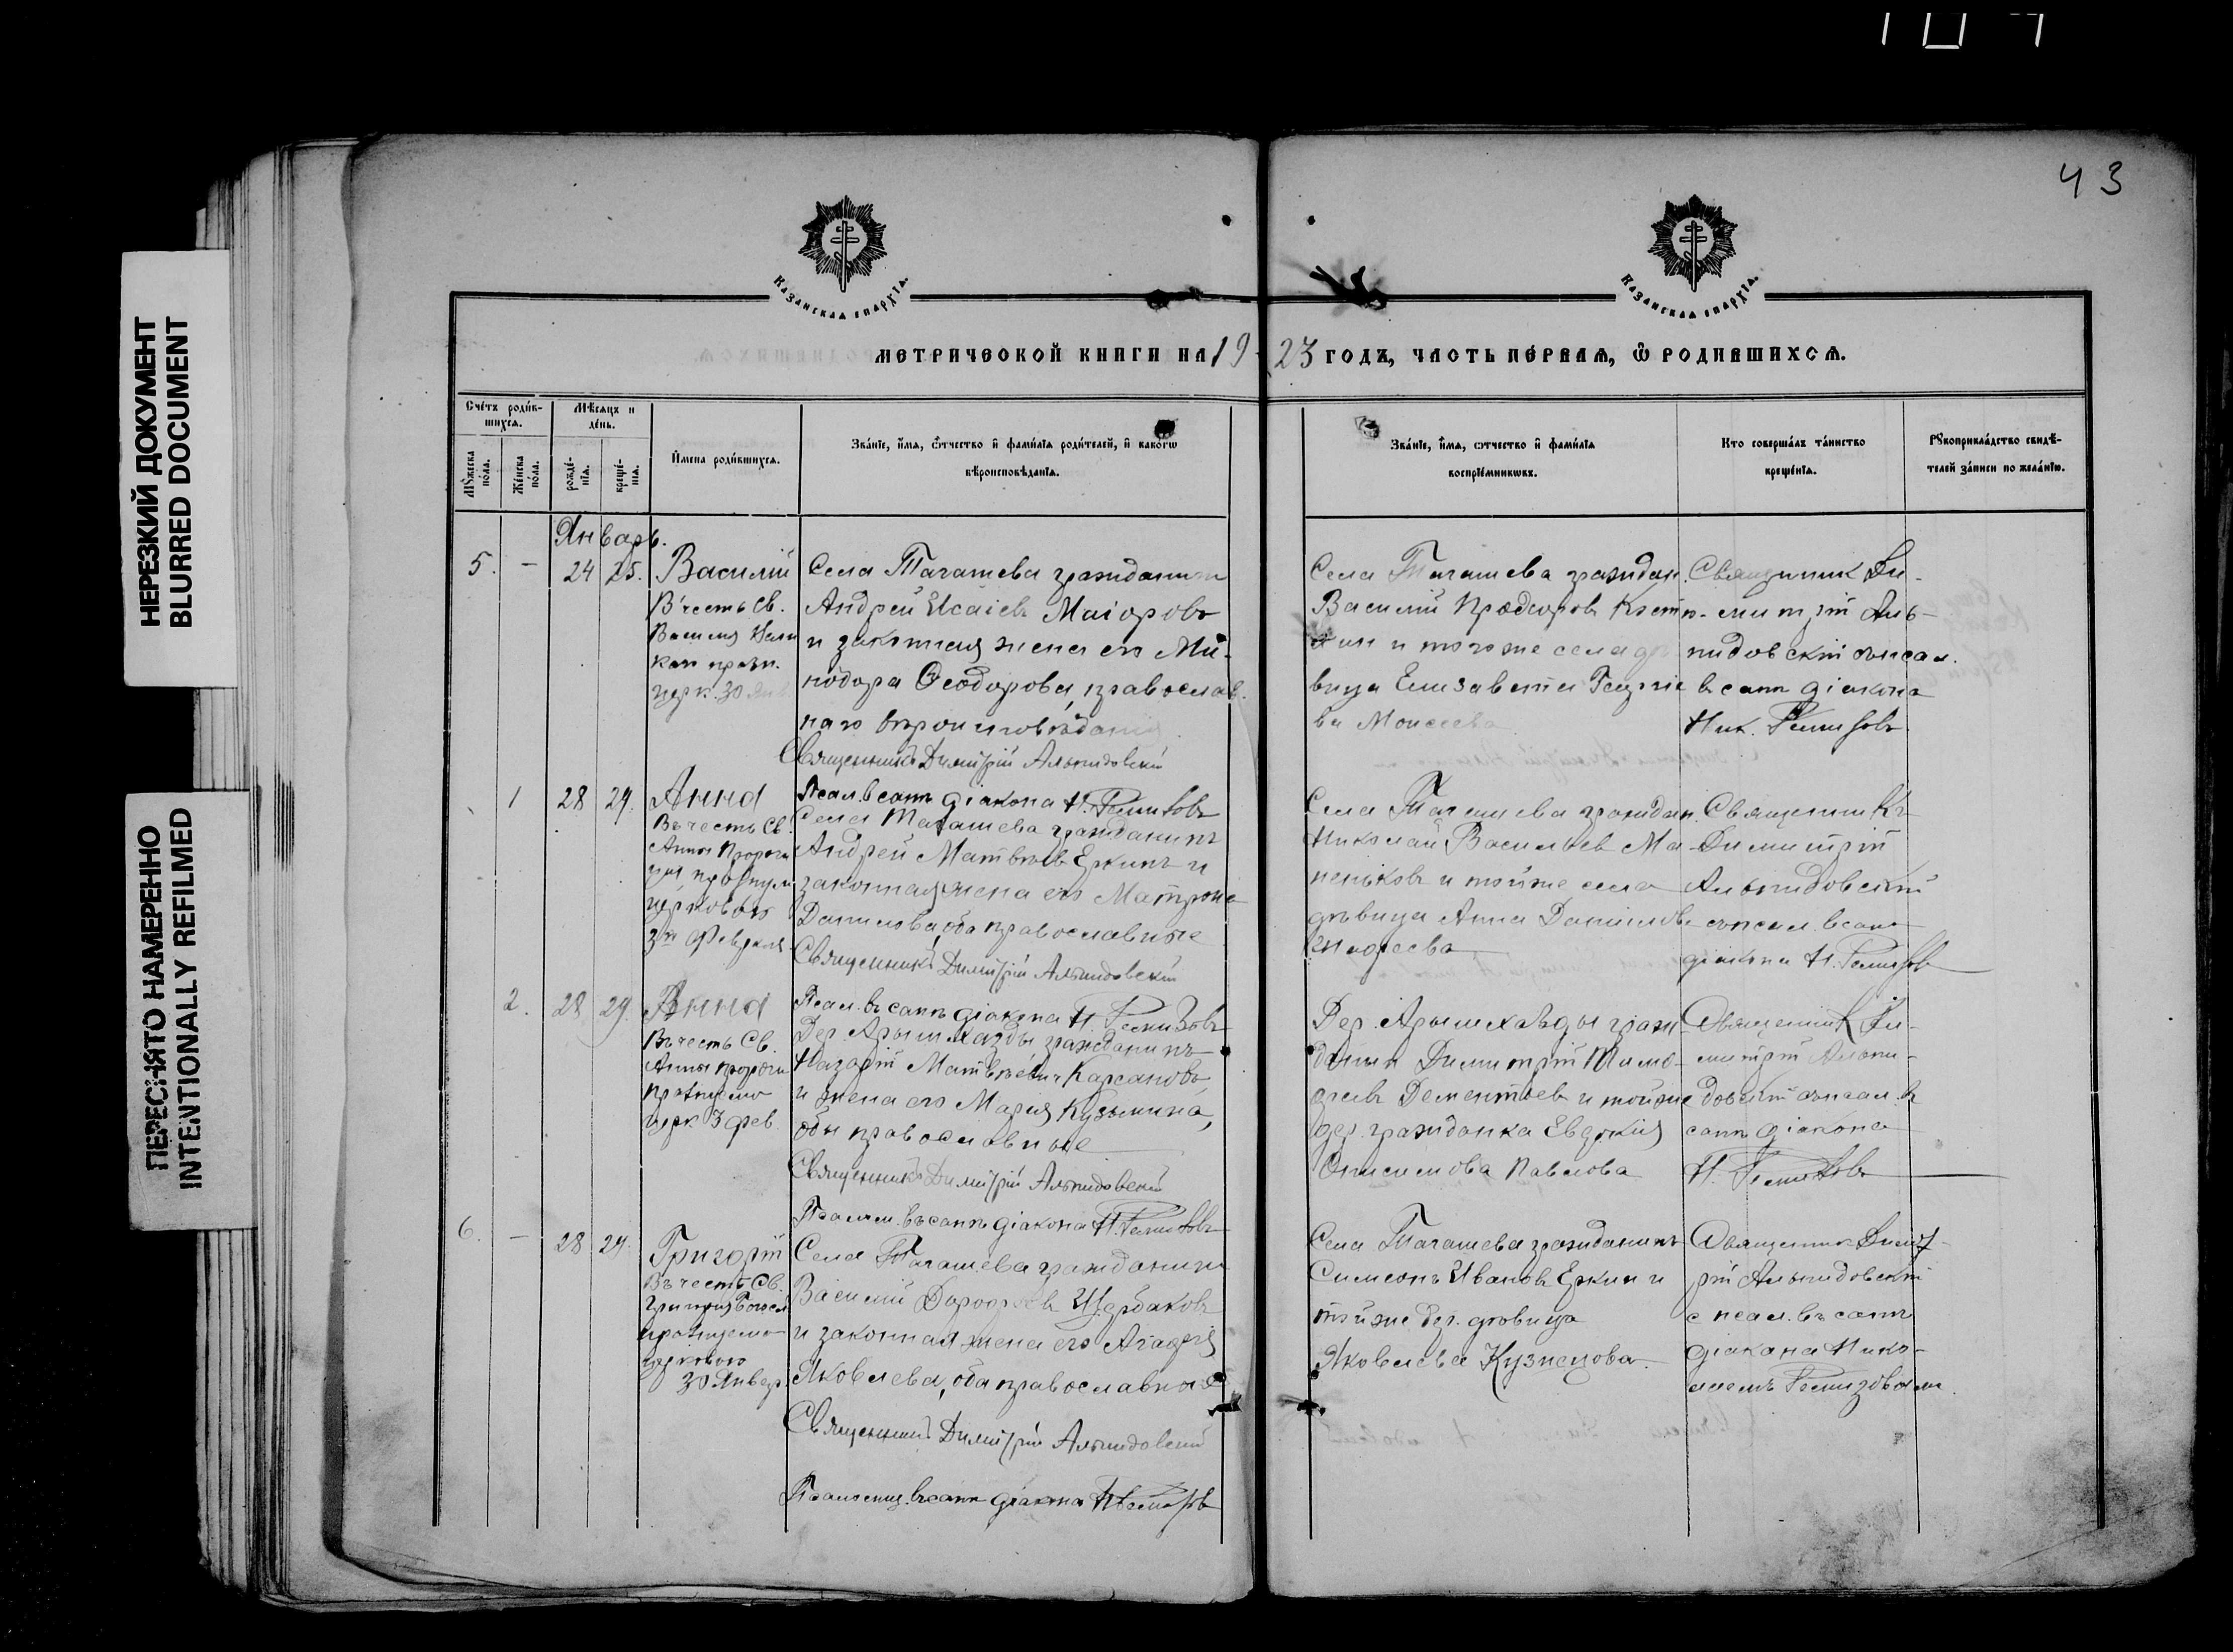 43
НЕРЕЗКИЙ ДОКУМЕНТ
BLURRED DOCUMENT
ПЕРЕСНЯТО НАМЕРЕННО
INTENTIONALLY REFILMED
КАЗАНСКАЯ ЕПАРХІЯ.
КАЗАНСКАЯ ЕПАРХІЯ.
МЕТРИЧЕСКОЙ КНИГИ НА 1923 ГОДЪ, ЧАСТЬ ПЕ́РВАЯ, Ѡ РОДИВШИХСЯ.
Сче́тъ роди́вшихся.
Му́жеска по́ла.
Же́нска по́ла.
Мѣ́сяцъ и де́нь.
рожде́нія.
креще́нія.
И҆мена роди́вшихся.
Зва́ніе, и҆́мя, ѻ҆́тчество и҆ фами́лія роди́телей, и҆ како́гѡ
вѣроисповѣ́данія.
Зва́ніе, и҆́мя, ѻтчество и҆ фами́лія
воспріе́мникѡвъ.
Кто соверша́лъ та́инство
креще́нія.
Рꙋкоприкла́дство свидѣ́-
телей за́писи по жела́нію.
Январь.
5. - 24 25. Василій
Въ честь Св.
церк. 30 Янв.
Села Тагашева гражданинъ
Андрей Исаіевъ Маіоровъ
и законная жена его Ми-
нодора Ѳеодорова, православ-
наго вѣроисповѣданія.
Священникъ Димитрій Альпидовскій
Псал. въ санѣ діакона Н. Ремизовъ
Села Тагашева граждан.
Василій
и тогоже села дѣ-
вица Елизавета Георгіе-
ва Моисеева
Священник Ди-
митрій Аль-
пидовскій съ псал.
в санѣ діакона
Ник. Ремизовъ.
1 28 29. Анна
Въ честь Св.
Анны Пророчи-
цы, празнуем.
церковью
3го Февраля
Села Тагашева гражданинъ
Андрей Матвѣевъ Еркинъ и
законная жена его Матрона
Данилова, оба православные
Священникъ Димитрій Альпидовскій
Псал. въ санѣ діакона Н. Ремизовъ
Села Тагашева граждан.
Николай Васильев Ма-
неньковъ и тойже села
дѣвица Анна Данилова
Священникъ
Димитрій
Альпидовскій
съ псал. в санѣ
діакона Н. Ремизовъ
2. 28 29. Анна
Въ честь Св.
Анны пророчи.
празнуемо
церк 3 фев.
Дер. Арышхазды гражданинъ
Назарій Матвѣевич Карсановъ
и жена его Марія Кузьмина,
оба православные
Священникъ Димитрій Альпидовскій
Псалом. въ санѣ діакона Н. Ремизовъ
Дер. Арышхазды граж-
данин Димитрій Тимо-
феевъ Дементьевъ и тойже
дер. гражданка Евдокия
Онисимова Павлова
Священник Ди-
митрій Альпи-
довскій съ псал. в
санѣ діакона
Н. Ремизовъ
6. - 28 29. Григорій
Въ честь Св.
Григорія Богосл.
празнуемо
церковью
30 Январ.
Села Тагашева гражданинъ
Василій Дорофеевъ Щербаковъ
и законная жена его Агафія
Яковлева, оба православные
Священникъ Димитрій Альпидовскій
Псаломщ. въ санѣ діакона Н. Ремизовъ
Села Тагашева гражданинъ
Симеонъ Ивановъ Еркин и
тойже дер. дѣвица
Яковлева Кузнецова.
Священник Димит-
рій Альпидовскій
с псал. въ санѣ
діакона Нико-
лаемъ Ремизовым.